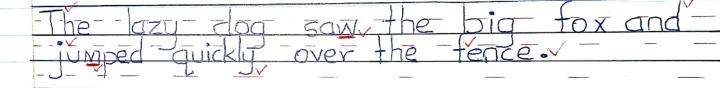 The lazy dog saw the big fox and
jumped quickly over the fence.